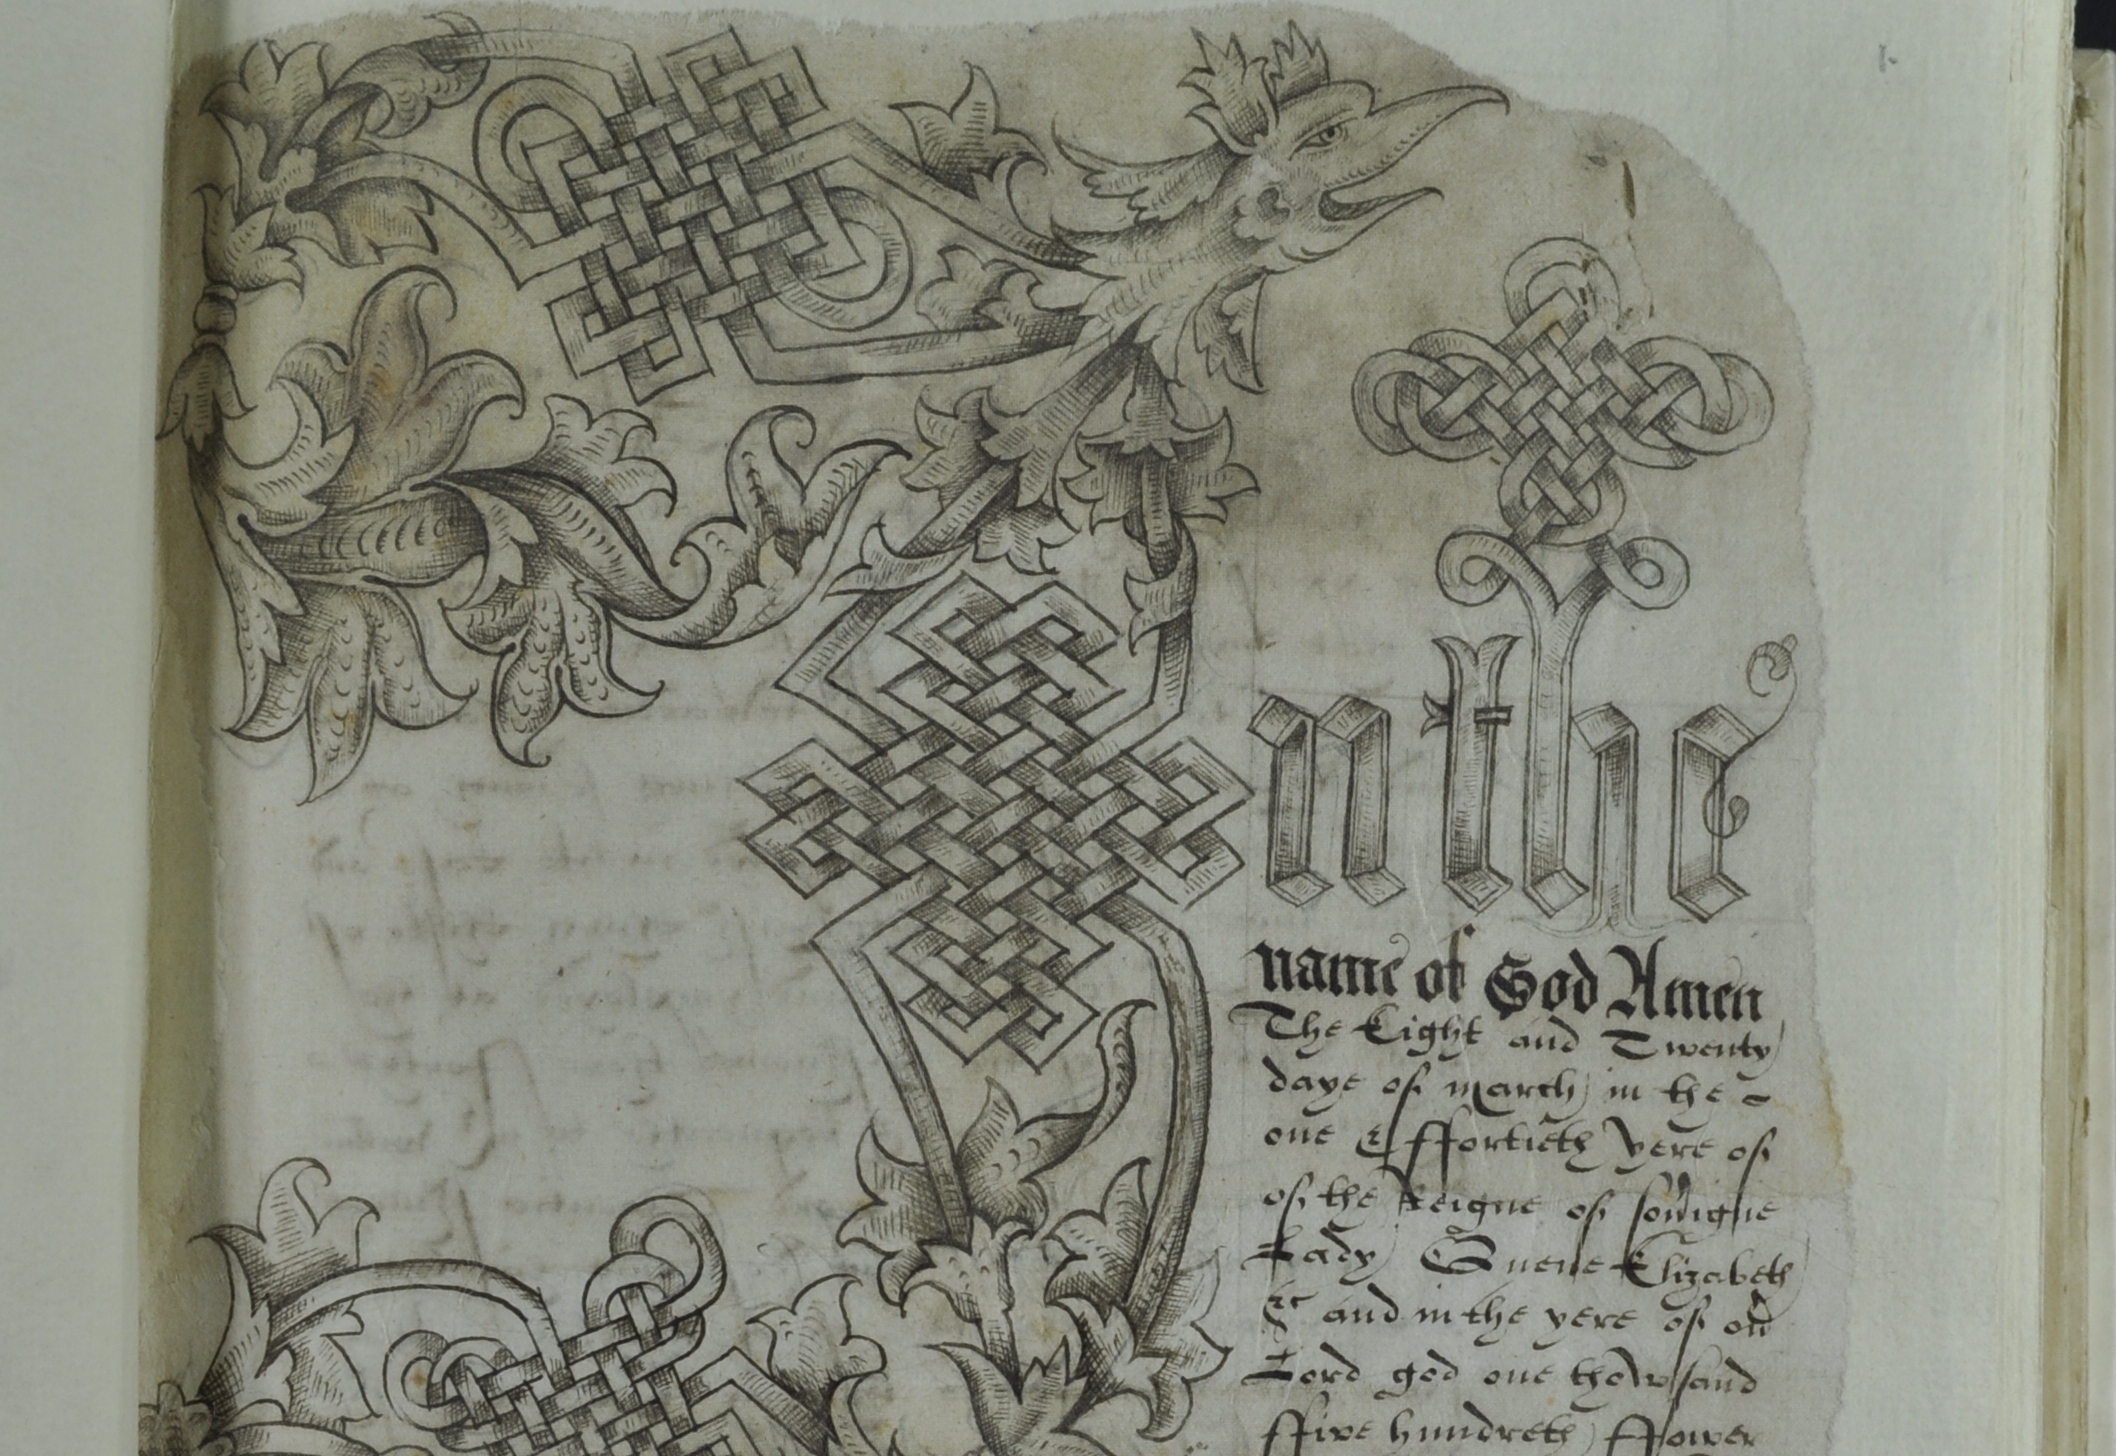 1.
n the
name of God Amen
The Eight and Twenty
daye of march in the
one & ffortieth yere of
of the Reigne of sou'igne
Lady Quene Elizabeth
&c and in the yere of our
Lord god one thowsand
ffive hundreth ffower